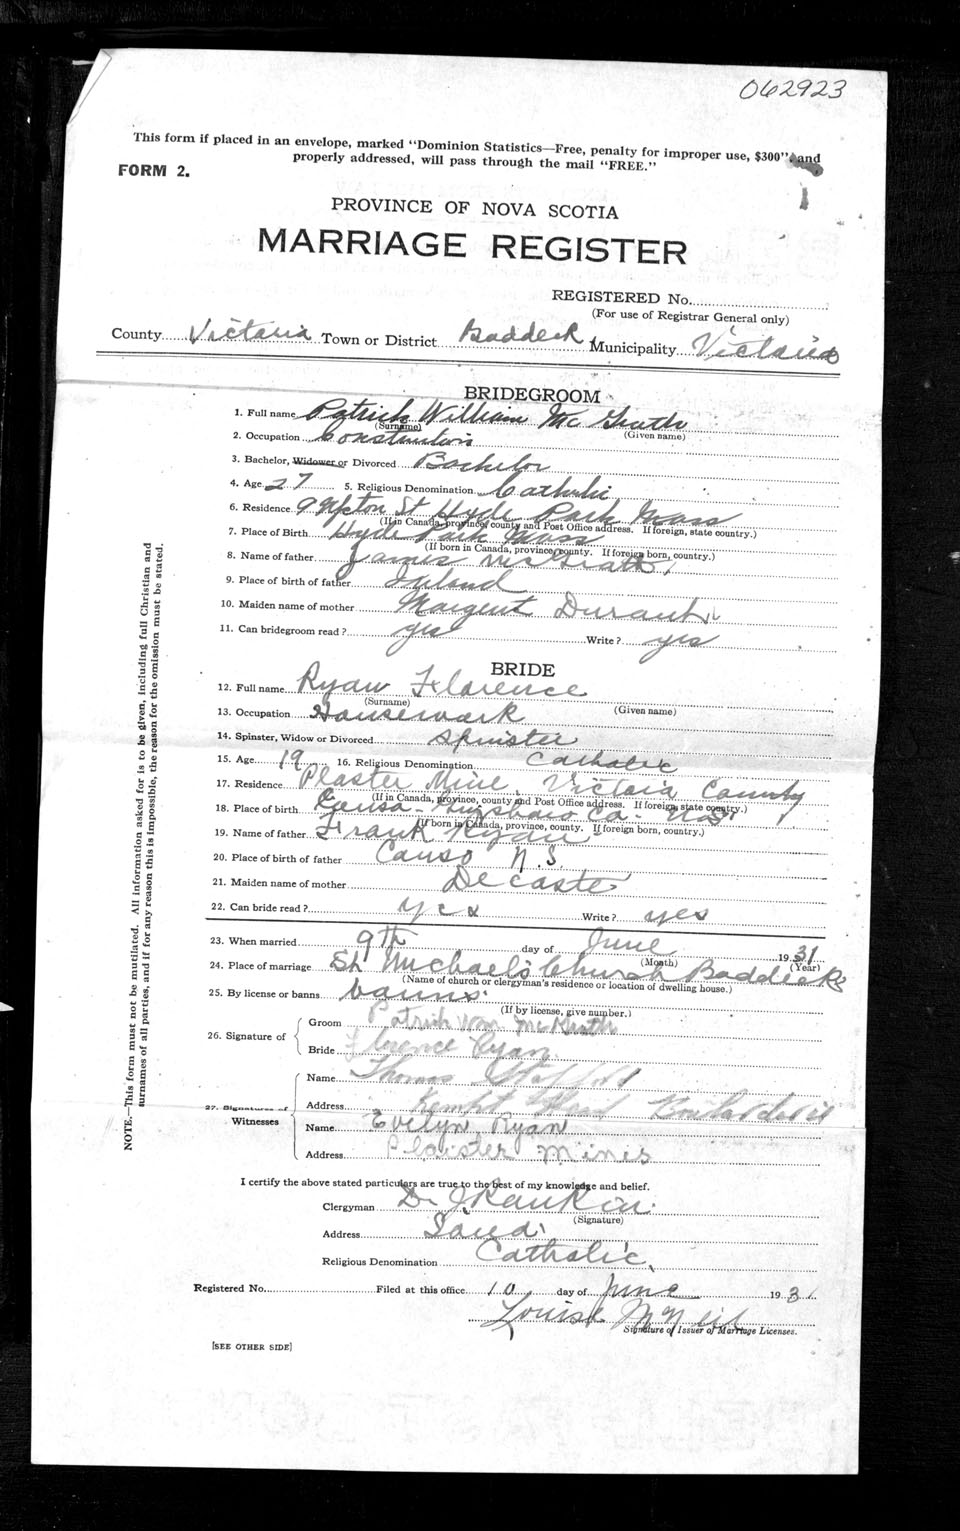 062923
This form if placed in an envelope, marked "Dominion Statistics—Free, penalty for improper use, $300" and
properly addressed, will pass through the mail "FREE."
FORM 2.
PROVINCE OF NOVA SCOTIA
MARRIAGE REGISTER
REGISTERED No.
(For use of Registrar General only)
County Victoria Town or District Baddeck Municipality Victoria
BRIDEGROOM
1. Full name Patrick William McGrath
(Surname) (Given name)
2. Occupation Construction
3. Bachelor, Widower or Divorced Bachelor
4. Age 27 5. Religious Denomination Catholic
6. Residence 9 St Hyde Park Mass
(If in Canada, province, county and Post Office address. If foreign, state country.)
7. Place of Birth Hyde Park Mass
(If born in Canada, province, county. If foreign born, country.)
8. Name of father James McGrath
9. Place of birth of father Ireland
10. Maiden name of mother Margaret Durant
11. Can bridegroom read? yes Write? yes
BRIDE
12. Full name Ryan Florence
(Surname) (Given name)
13. Occupation Housework
14. Spinster, Widow or Divorced Spinster
15. Age 19 16. Religious Denomination Catholic
17. Residence Plaster Mine, Victoria County
(If in Canada, province, county and Post Office address. If foreign state country.)
18. Place of birth Canso Guysboro Co. N.S.
(If born in Canada, province, county. If foreign born, country.)
19. Name of father Frank Ryan
20. Place of birth of father Canso N.S.
21. Maiden name of mother Decaste
22. Can bride read? yes Write? yes
23. When married 9th day of June 1931
(Month) (Year)
24. Place of marriage St Michael's Church Baddeck
(Name of church or clergyman's residence or location of dwelling house.)
25. By license or banns banns
(If by license, give number.)
26. Signature of
Groom Patrick Wm McGrath
Bride Florence Ryan
27. Signatures of Witnesses
Name Thomas
Address
Name Evelyn Ryan
Address Plaister Mines
I certify the above stated particulars are true to the best of my knowledge and belief.
Clergyman D J Rankin
(Signature)
Address Iona
Religious Denomination Catholic
Registered No. Filed at this office 10 day of June 1931
Louise McNeil
Signature of Issuer of Marriage Licenses.
[SEE OTHER SIDE]
NOTE.—This form must not be mutilated. All information asked for is to be given, including full Christian and
surnames of all parties, and if for any reason this is impossible, the reason for the omission must be stated.